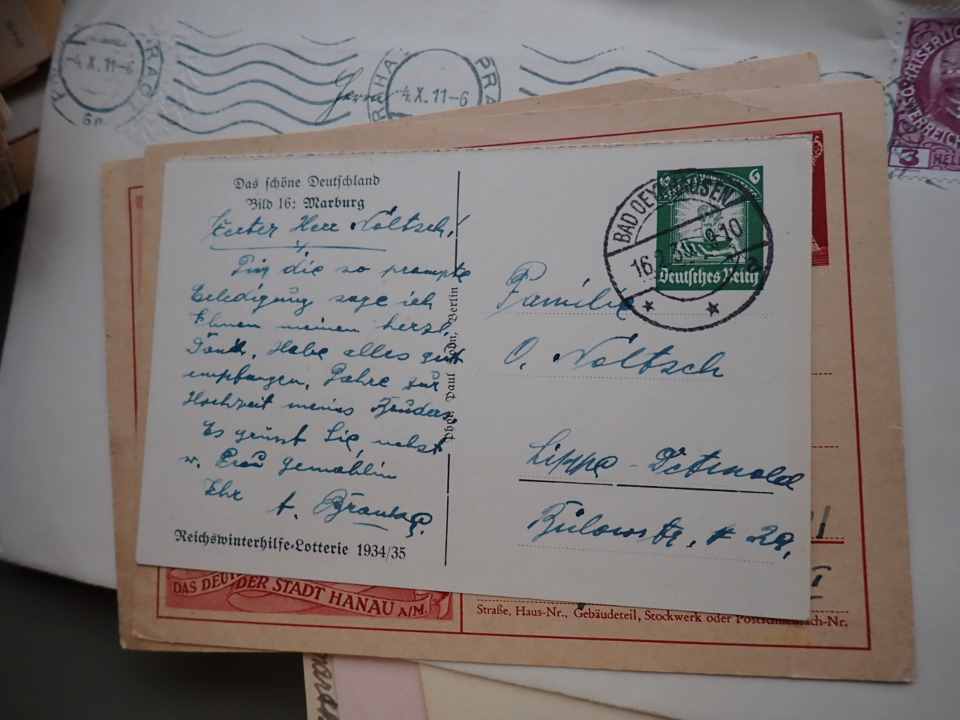 4.X.11-6
4.X.11-6
Herrn
PRAG
ÖSTERREICH
3
Das schöne Deutschland
Bild 16: Marburg
Werter Herr Noltsch!
Für die so prompte
Erledigung sage ich
Ihnen meinen herzl.
Dank. Habe alles gut
empfangen. Fahre zur
Hochzeit meines Bruders.
Es grüsst Sie, nebst
w. Frau Gemahlin
Ihr
Reichswinterhilfe-Lotterie 1934/35
Berlin
6
Deutsches Reich
BAD OEYNHAUSEN
Familie
O. Noltsch
Lippe-Detmold
Bülowstr. # 29.
DER STADT HANAU A/M.
Straße, Haus-Nr., Gebäudeteil, Stockwerk oder Postschließfach-Nr.